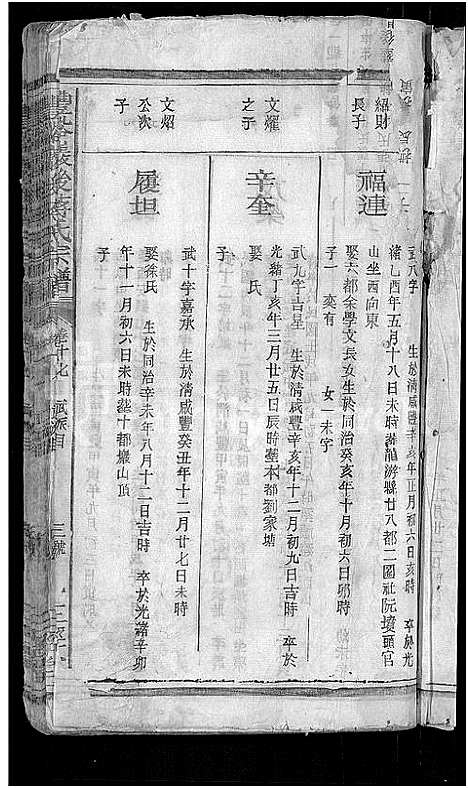 紹財
長子
福連
武八字 生於清咸豐辛亥年正月初六日亥時 卒於光
緒乙酉年五月十八日未時葬湯游縣廿八都二圖社阮墳頭官
山坐西向東
娶六都余學文長女生於同治癸亥年十月初六日卯時
子一 奕有 女一未字
文燿
之子
辛奎
武九字吉星 生於清咸豐辛亥年十二月初九日吉時 卒於
光緒丁亥年三月廿五日辰時塟本都劉家塘
娶 氏
子
文炤
公次
子
履坦
武十字嘉承 生於咸豐癸丑年十二月廿七日未時
娶徐氏 生於同治辛未年八月十二日吉時 卒於光緒辛卯
年十一月初六日未時塟十都嚴山頂
子
後蔣氏宗譜
卷十九 武派